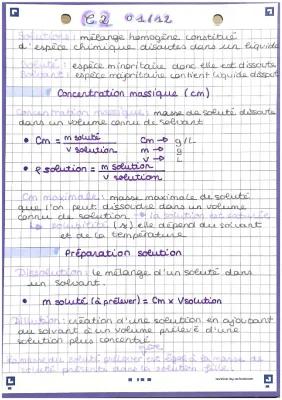 C2 01/12
Solutions : mélange homogène constitué
d'espèce chimique dissoutes dans un liquide
Soluté : espèce minoritaire donc elle est dissoute
Solvant : espèce majoritaire contient liquide dissout
Concentration massique (cm)
Concentration massique : masse de soluté dissoute
dans un volume connu de solvant
• Cm = m soluté / v solution Cm → g/L
m → g
v → L
• ρ solution = m solution / v solution
Cm maximale : masse maximale de soluté
que l'on peut dissoudre dans un volume
connu de solution → la solution est saturée
→ solubilité (s) elle dépend du solvant
et de la température
Préparation solution
Dissolution : le mélange d'un soluté dans
un solvant.
• m soluté (à prélever) = Cm x Vsolution
Dilution : création d'une solution en ajoutant
au solvant à un volume prélevé d'une
solution plus concentré
mère
la masse du soluté prélever est égal à la masse de
soluté présente dans la solution fille.